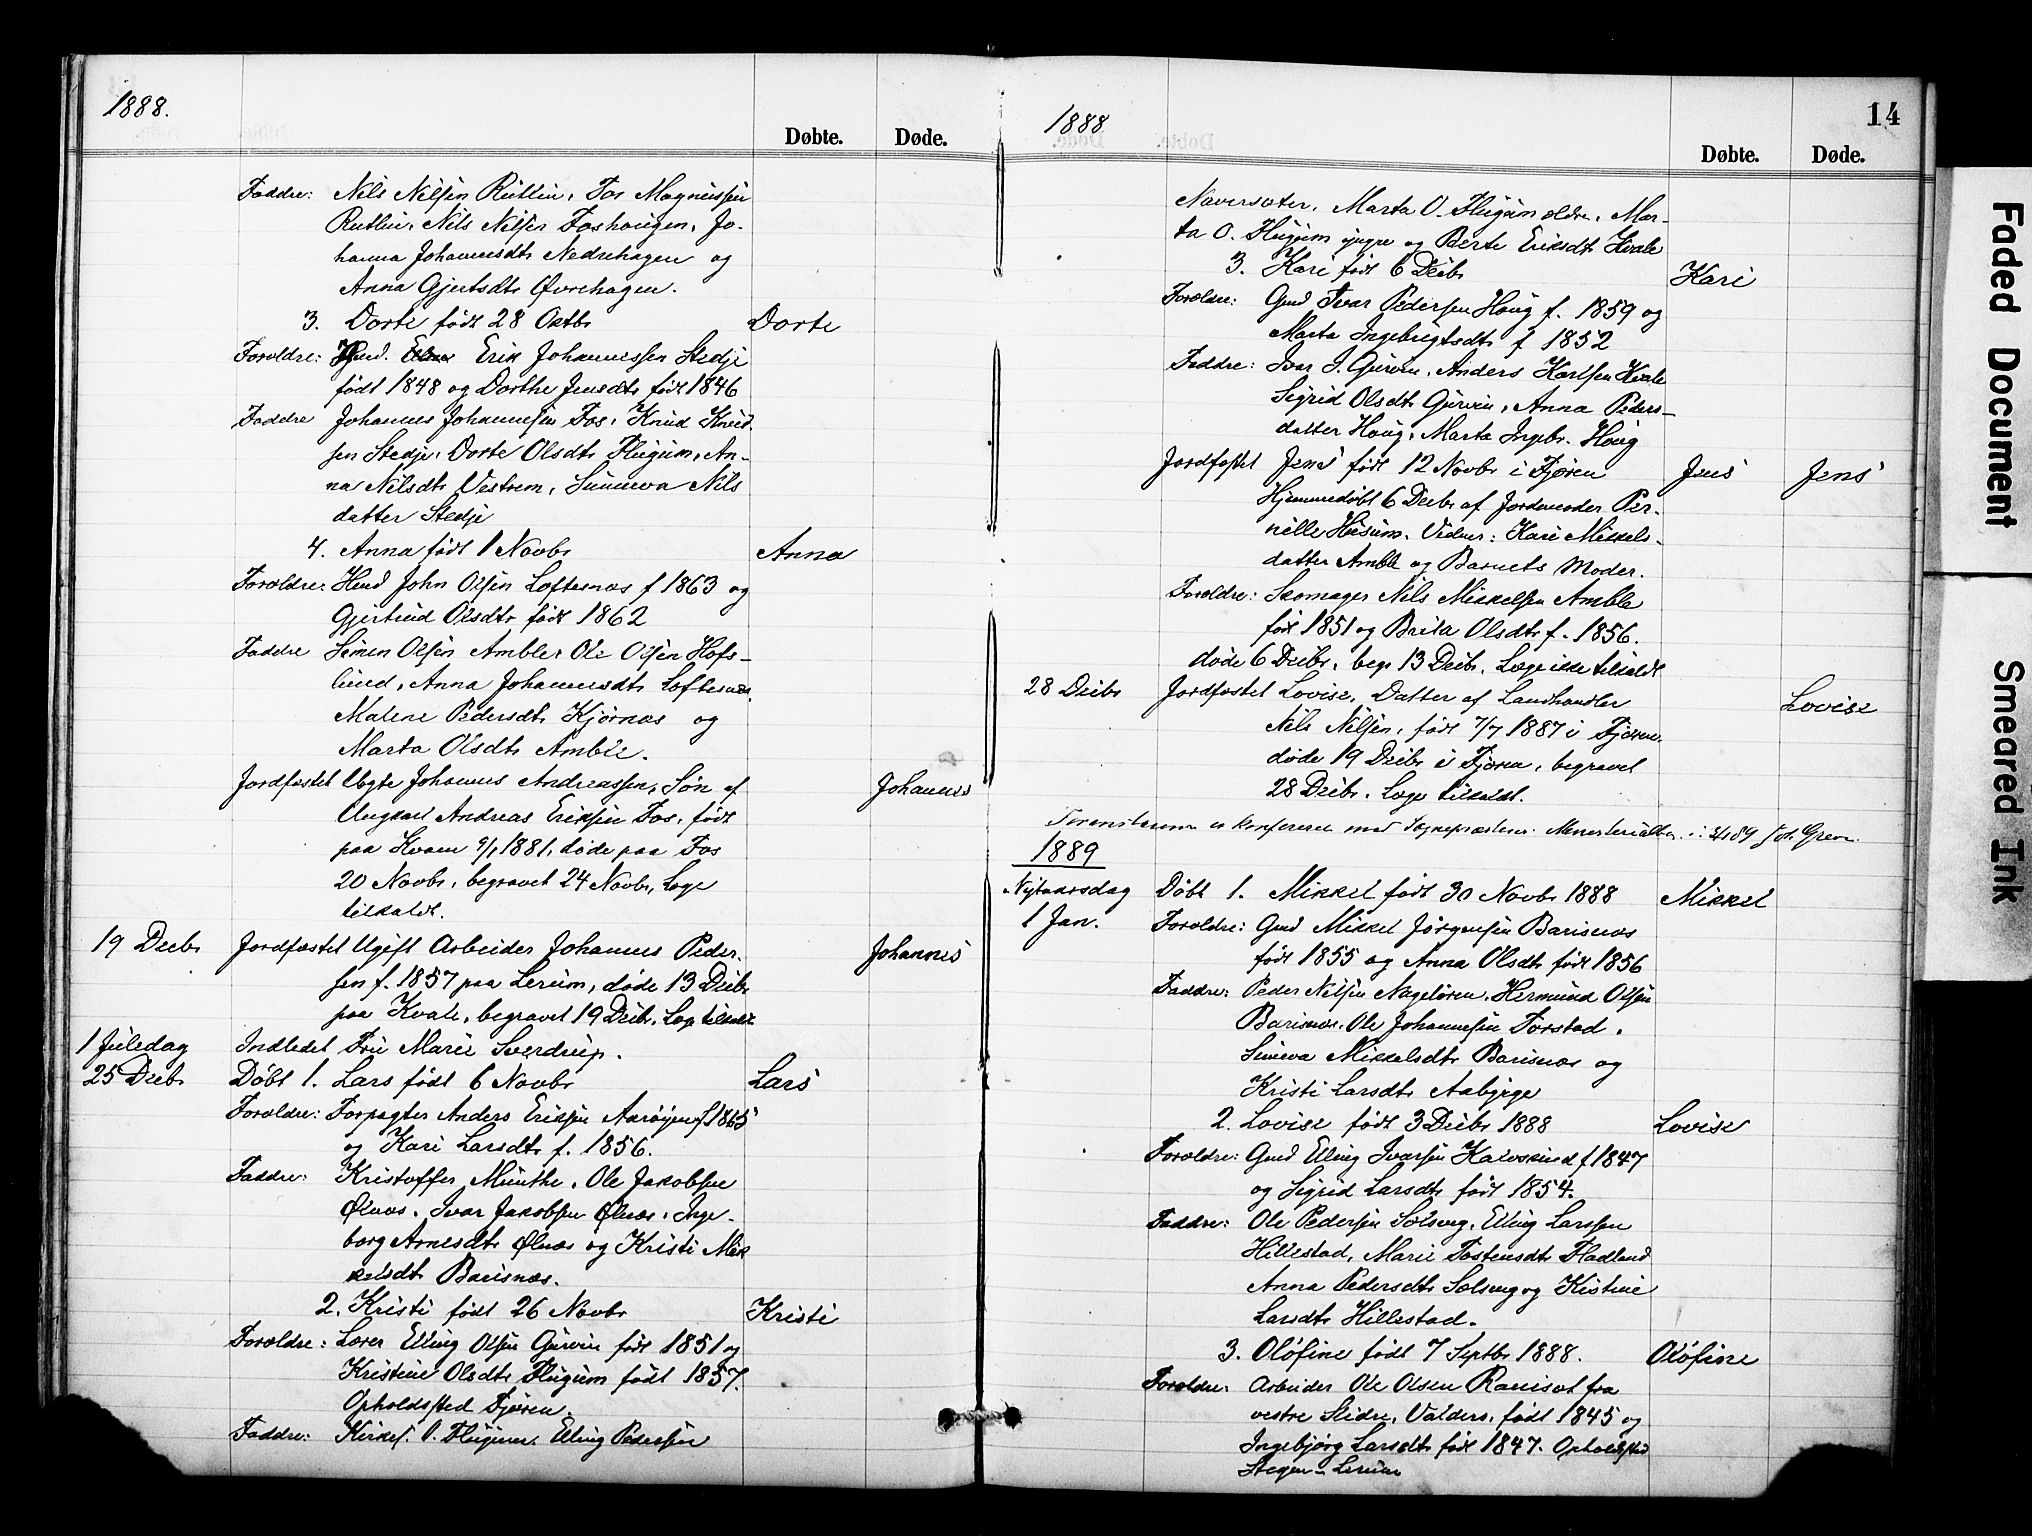 1888.
Døbte. Døde.
Faddre: Nils Nilsen Rutlin, Tos Magnussen
Rutlin, Nils Nilsen Foshaugen, Jo-
hanna Johannesdtr Nedrehagen og
Anna Gjertsdtr Øvrehagen.
3. Dorte født 28 Oktbr Dorte
Foroldre: Gmd. Erik Johannessen Stedje
født 1848 og Dorthe Jensdtr født 1846
Faddre Johannes Johannessen Fos, Knud Knud-
sen Stedje, Dorte Olsdtr Flugum, An-
na Nilsdtr Vestrem, Sunneva Nils
datter Stedje
4. Anna født 1 Novbr Anna
Foroldre: Hmd John Olsen Loftesnæs f 1863 og
Gjertrud Olsdtr født 1862
Faddre Simon Olsen Amble, Ole Olsen Hofs-
lund, Anna Johannesdtr Loftesnæs
Malene Pedersdtr Kjørnæs og
Marta Olsdtr Amble.
Jordfæstet Ugte Johannes Andreassen, Søn af Johannes
Ungkarl Andreas Eriksen Fos, født
paa Kvam 1881, døde paa Fos
20 Novbr, begravet 24 Novbr, Læge
tilkaldt.
19 Decbr Jordfæstet Ugift Arbeider Johannes Peder- Johannes
sen f. 1857 paa Lerum, døde 13 Decbr
paa Kvale, begravet 19 Decbr, Læge tilkaldt
1 Juledag Indledet Fru Marie Sverdrup.
25 Decbr Døbt 1. Lars født 6 Novbr Lars
Foroldre: Forpagter Anders Eriksen Aarøyen f 1865
og Kari Larsdtr f. 1856.
Faddre: Kristoffer Munthe, Ole Jakobsen
Ølnæs, Ivar Jakobsen Ølnæs, Inge-
borg Arnesdtr Ølnæs og Kristi Mik
kelsdtr Barisnæs.
2. Kristi født 26 Novbr Kristi
Foroldre: Lærer Elling Olsen Gurvin født 1851 og
Kristine Olsdtr Flugum født 1857.
Opholdssted Fjøren.
Faddre: Kirkes. O. Flugum. Elling Pedersen
1888 14
Døbte. Døde.
Naversæter, Marta O. Flugum ældre, Mar-
ta O. Flugum yngre og Berte Eriksdt Hvale
3. Kari født 6 Decbr Kari
Foroldre: Gmd Ivar Pedersen Houg f. 1859 og
Marta Ingebrigtsdtr f 1852
Faddre: Ivar J. Gurvin, Anders Karlsen Kvale
Sigrid Olsdtr Gurvin, Anna Peders-
datter Houg, Marta Ingebr. Houg
Jordfæstet Jens født 12 Novbr i Fjøren Jens Jens
Hjemmedøbt 6 Decbr af Jordemoder Per-
nille Husum. Vidner: Kari Mikkels-
datter Amble og Barnets Moder.
Foroldre: Skomager Nils Mikkelsen Amble
født 1851 og Brita Olsdtr f. 1856.
døde 6 Decbr, begr 13 Decbr. Læge ikke tilkaldt
28 Decbr Jordfæstet Lovise, Datter af Landhandler Lovise
Nils Nilsen, født 7/7 1887 i Fjøren
døde 19 Decbr i Fjøren, begravet
28 Decbr. Læge tilkaldt.
Foranstaaende er konfereret med Sognepræstens Ministerialbog 89 Joh. Gren.
1889
Nytaarsdag Døbt 1. Mikkel født 30 Novbr 1888 Mikkel
1 Jan. Foroldre: Gmd Mikkel Jørgensen Barisnæs
født 1855 og Anna Olsdtr født 1856
Faddre: Peder Nilsen Nageløren, Hermund Olsen
Barisnæs, Ole Johannesen Torstad,
Suneva Mikkelsdtr Barisnæs og
Kristi Larsdtr Aabjørge
2. Lovise født 3 Decbr 1888 Lovise
Foroldre: Gmd Elling Ivarsen Kalvskind f 1847
og Sigrid Larsdtr født 1854.
Faddre: Ole Pedersen Solsvig, Elling Larssen
Hillestad, Marie Tostensdtr Fladland
Anna Pedersdtr Solsvig og Kistine
Larsdtr Hillestad.
3. Oløfine født 7 Septbr 1888. Oløfine
Foroldre: Arbeider Ole Olsen Ranisæt fra
vestre Slidre, Valders, født 1845 og
Ingebjørg Larsdtr født 1847. Opholdssted
Stegen - Lerum
Faded Document
Smeared Ink